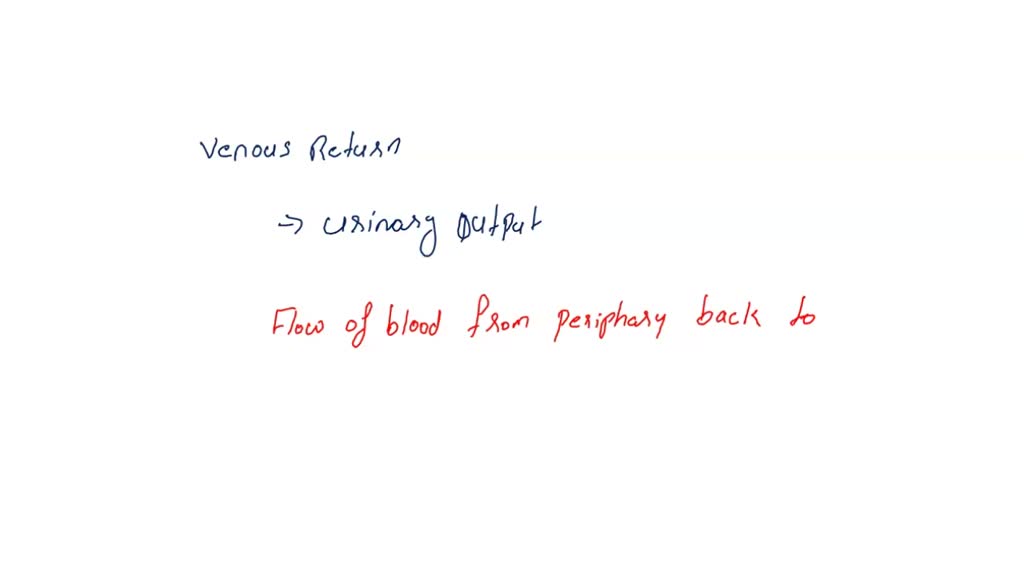 Venous Return
→ Urinary Output
Flow of blood from periphary back to